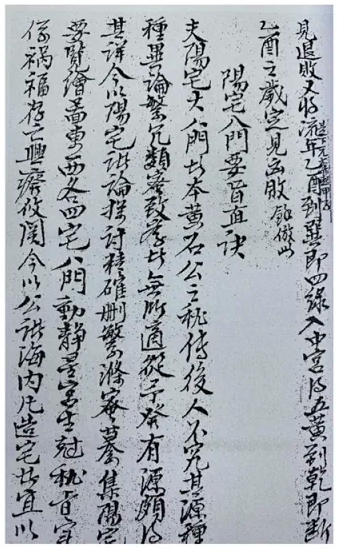 見退敗又將流年乙酉到巽即四綠入中宮為五黃到乾即斷
乙酉之歲定見凶敗 餘倣此
陽宅八門要旨直訣
夫陽宅大八門者本黃石公之秘傳後人不究其源種
種異論繁冗類密致學者無所適從予發有源頗得
其詳今以陽宅諸論探討精確刪繁滌穢纂集陽宅
要覽繪圖東西各四宅八門動靜星宮生剋秘旨實
係禍福存亡興廢攸關今以公諸海內凡造宅者宜以